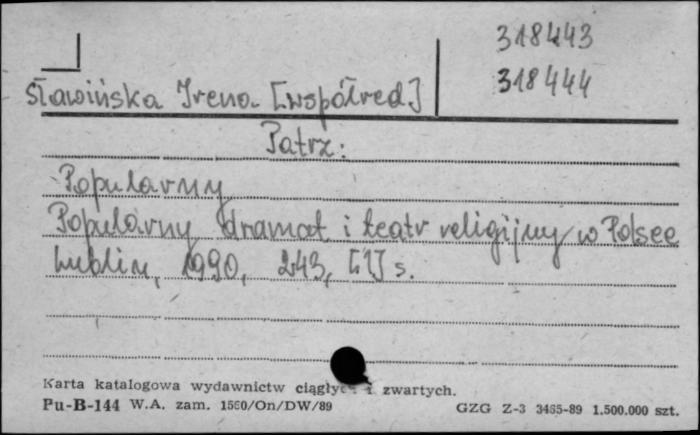 318443
318444
Sławińska Irena [współred]
Patrz:
Popularny
Popularny dramat i teatr religijny w Polsce
Lublin, 1990, 243, [1] s.
Karta katalogowa wydawnictw ciągłych i zwartych.
Pu-B-144 W.A. zam. 1560/On/DW/89 GZG Z-3 3465-89 1.500.000 szt.